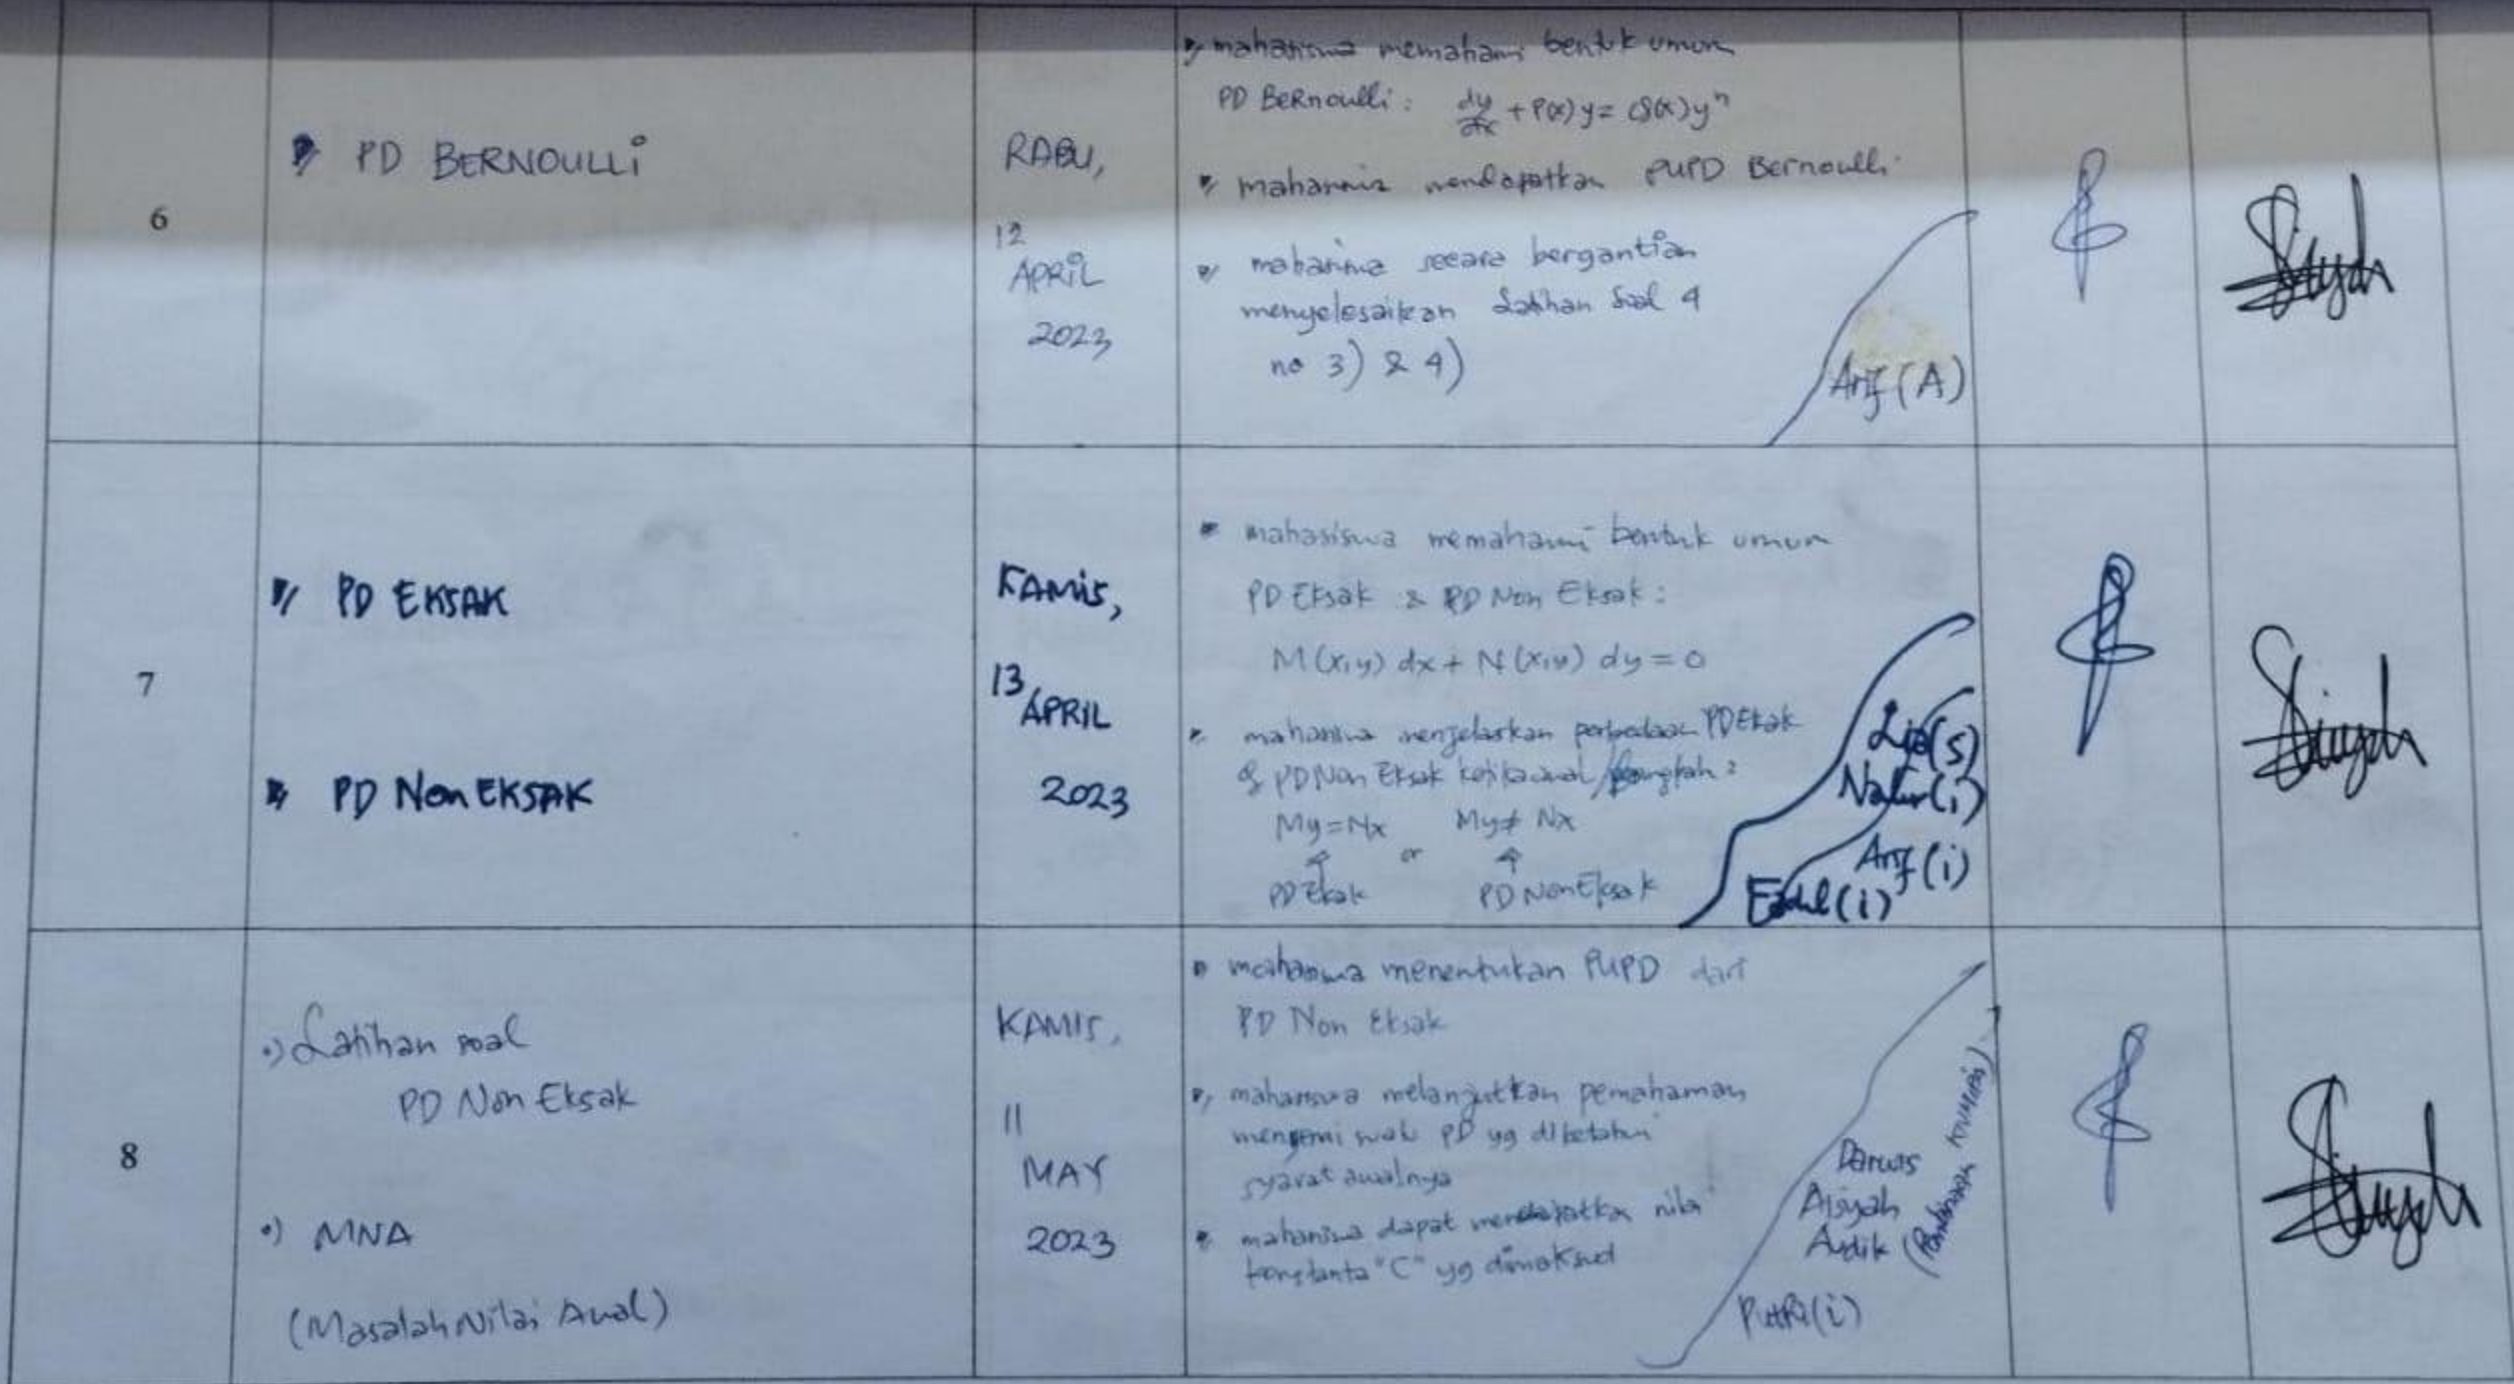 6
PD BERNOULLI
RABU,
12
APRIL
2023
mahasiswa memahami bentuk umum
PD Bernoulli : dy/dx + P(x) y = Q(x) y^n
mahasiswa mendapatkan PUPD Bernoulli
mahasiswa secara bergantian
menyelesaikan Latihan Soal 4
no 3) & 4)
Arif (A)
7
PD EKSAK
PD Non EKSAK
KAMIS,
13
APRIL
2023
mahasiswa memahami bentuk umum
PD Eksak & PD Non Eksak :
M(x,y) dx + N(x,y) dy = 0
mahasiswa menjelaskan perbedaan PD Eksak
& PD Non Eksak
My = Nx or My ≠ Nx
PD Eksak PD Non Eksak
(s)
(i)
Arif (i)
Fadil (i)
8
•) Latihan soal
PD Non Eksak
•) MNA
(Masalah Nilai Awal)
KAMIS,
11
MAY
2023
mahasiswa menentukan PUPD dari
PD Non Eksak
mahasiswa melanjutkan pemahaman
PD yg diketahui
syarat awalnya
mahasiswa dapat mendapatkan nilai
konstanta "C" yg dimaksud
Darwis
Aisyah
Andik
Putri (i)